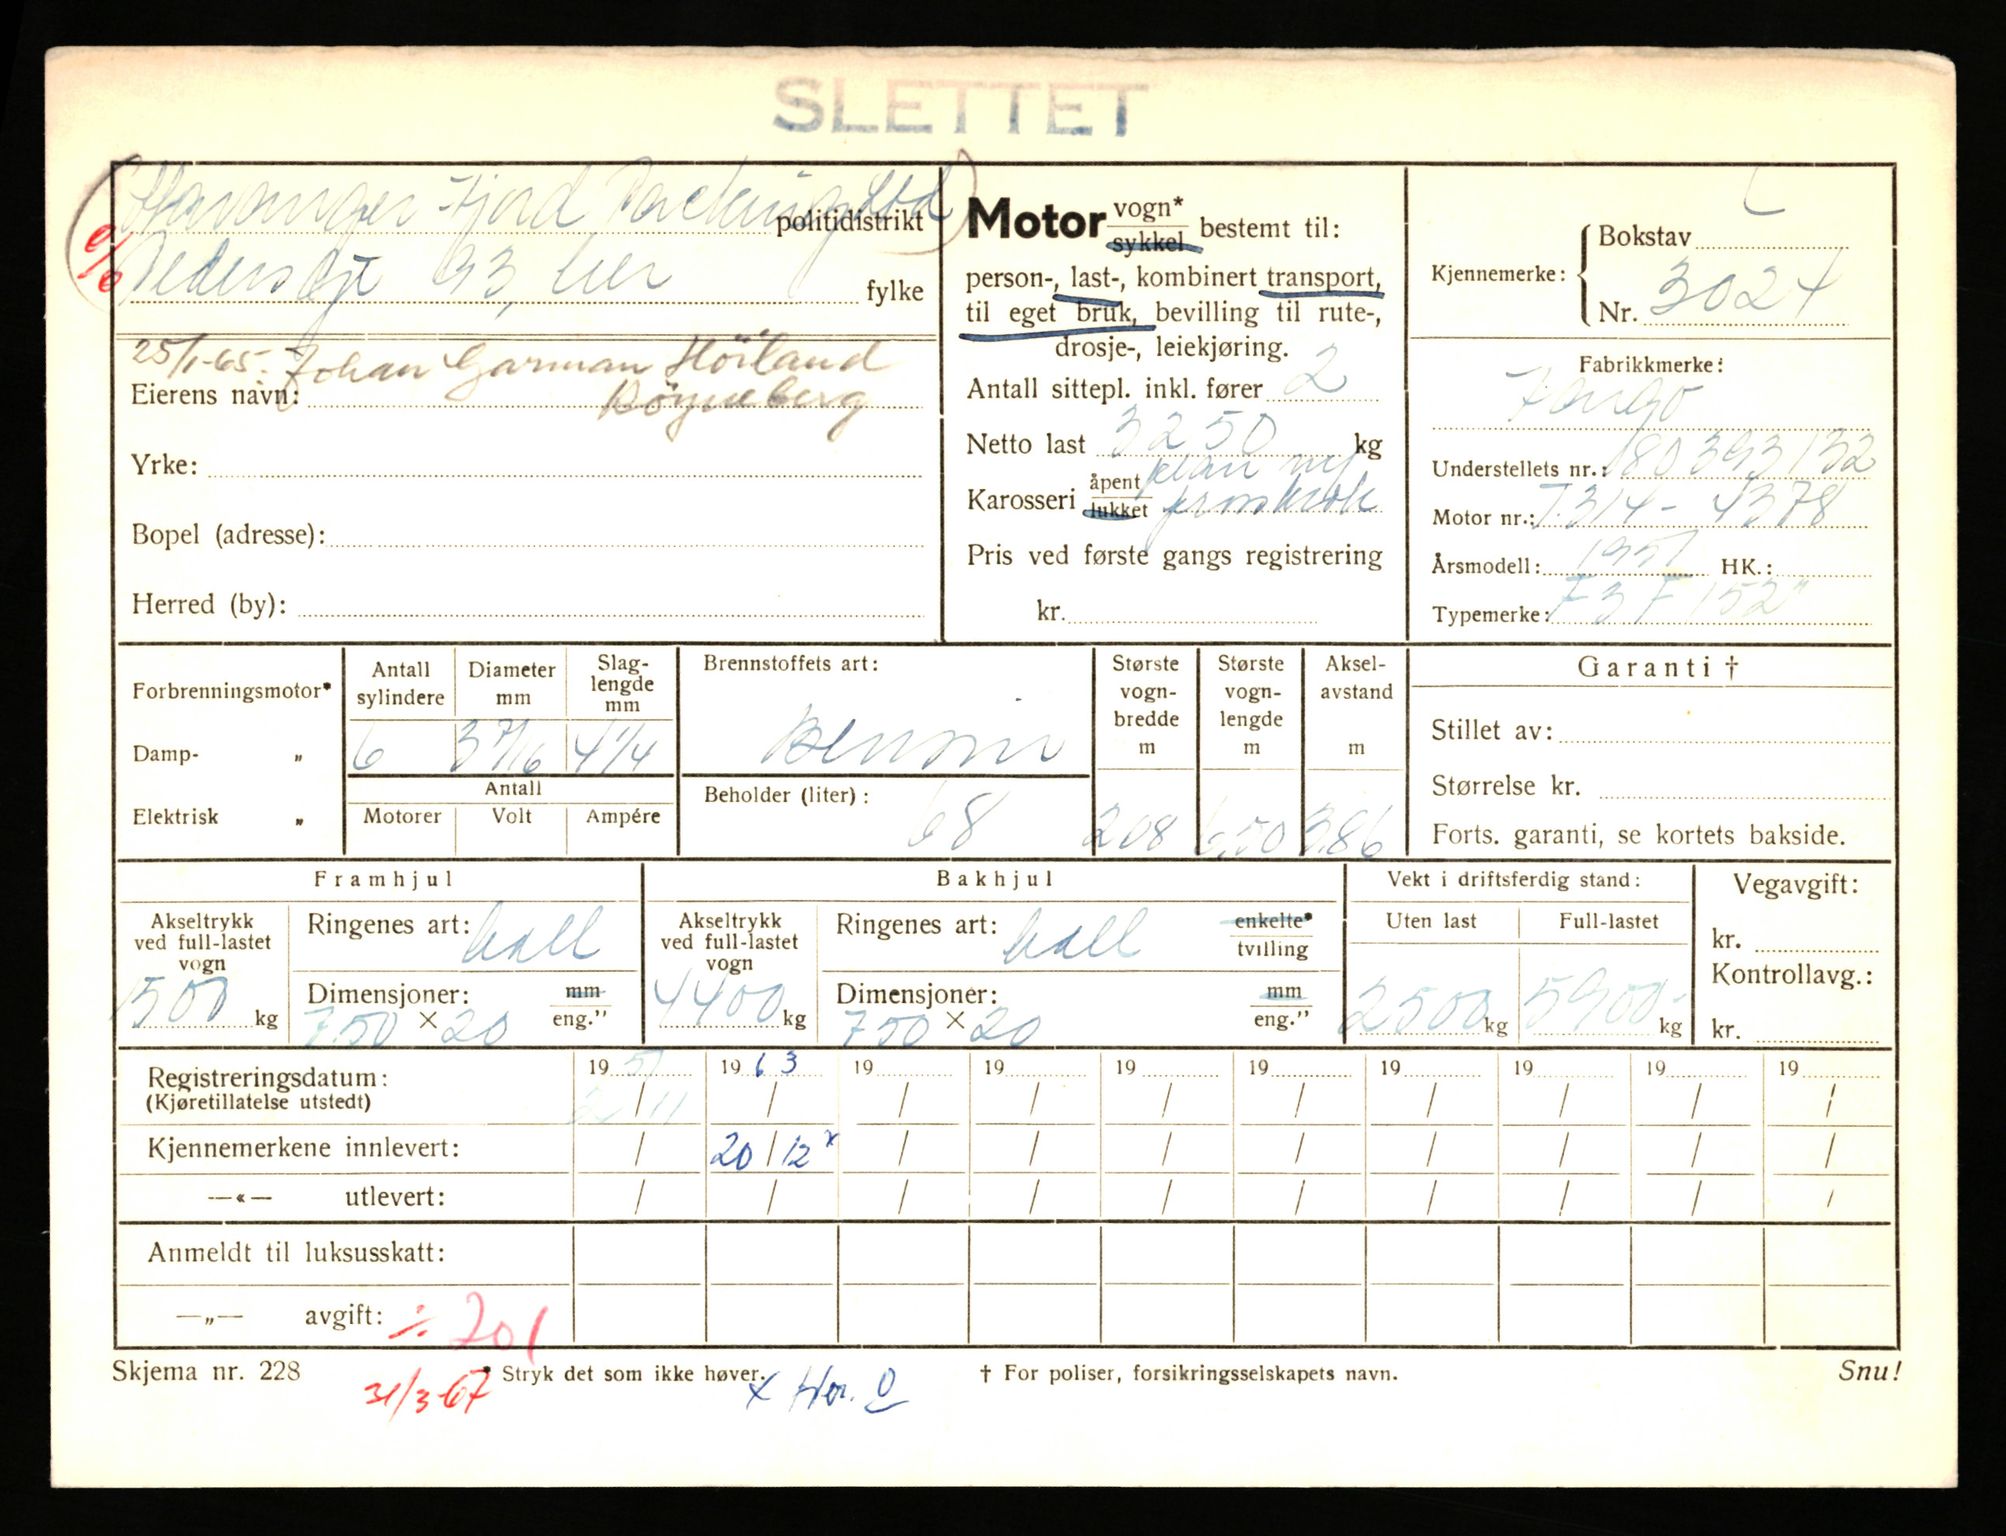 SLETTET
Stavanger Fjord Packing Ltd politidistrikt
e/o Pedersgt 93, her fylke
25/1-65. Johan Garman Höiland
Eierens navn: Döyneberg
Yrke:
Bopel (adresse):
Herred (by):
Motor vogn* sykkel bestemt til:
person-, last-, kombinert transport,
til eget bruk, bevilling til rute-,
drosje-, leiekjøring.
Antall sittepl. inkl. fører 2
Netto last 3250 kg
Karosseri åpent lukket plan m/
Pris ved første gangs registrering
kr.
Kjennemerke: Bokstav L
Nr. 3024
Fabrikkmerke:
Fargo
Understellets nr.: 80393132
Motor nr.: T.314-4378
Årsmodell: 1951 HK.:
Typemerke: F3F152"
Forbrenningsmotor*
Damp- „
Elektrisk „
Antall sylindere
6
Diameter mm
3 7/16
Slag-lengde mm
4 1/4
Antall
Motorer Volt Ampére
Brennstoffets art:
Bensin
Beholder (liter): 68
Største vogn-bredde m
208
Største vogn-lengde m
6,50
Aksel-avstand m
3.86
Garanti †
Stillet av:
Størrelse kr.
Forts. garanti, se kortets bakside.
Framhjul
Akseltrykk ved full-lastet vogn
1500 kg
Ringenes art: hall
Dimensjoner: mm eng."
7.50 × 20
Bakhjul
Akseltrykk ved full-lastet vogn
4400 kg
Ringenes art: hall enkelte* tvilling
Dimensjoner: mm eng."
750 × 20
Vekt i driftsferdig stand:
Uten last Full-lastet
2500 kg 5900- kg
Vegavgift:
kr.
Kontrollavg.:
kr.
Registreringsdatum: 19 51 19 63 19 19 19 19 19 19 19 19
(Kjøretillatelse utstedt) / 11 / / / / / / / / /
Kjennemerkene innlevert: / 20/12 x / / / / / / / /
—«— utlevert: / / / / / / / / / /
Anmeldt til luksusskatt:
—„— avgift: ÷ 701
Skjema nr. 228 * Stryk det som ikke høver. † For poliser, forsikringsselskapets navn. Snu!
31/3-67 x